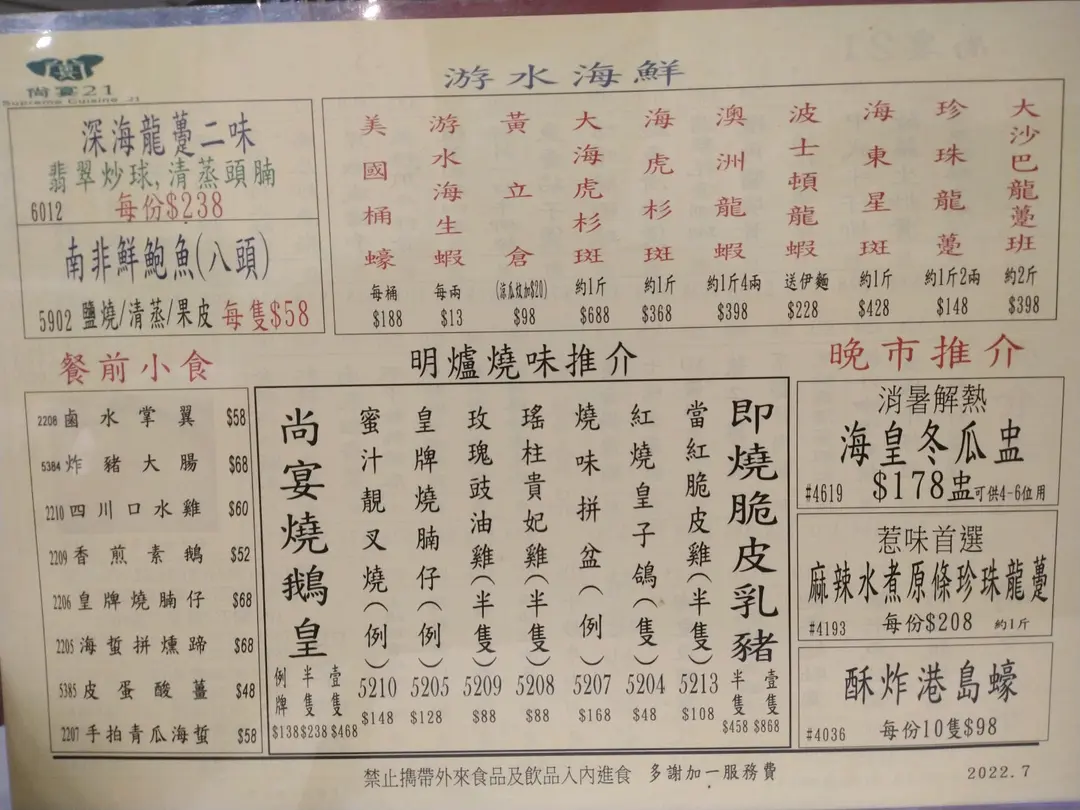 尚宴21
Supreme Cuisine 21
游水海鮮
深海龍躉二味
翡翠炒球,清蒸頭腩
6012 每份$238
南非鮮鮑魚(八頭)
5902 鹽燒/清蒸/果皮 每隻$58
美國桶蠔 每桶 $188
游水海生蝦 每兩 $13
黃立倉 (涼瓜炆加$20) $98
大海虎杉斑 約1斤 $688
海虎杉斑 $368
澳洲龍蝦 約1斤4兩 $398
波士頓龍蝦 送伊麵 $228
海東星斑 約1斤 $428
珍珠龍躉 約1斤2兩 $148
大沙巴龍躉班 約2斤 $398
餐前小食
2208 鹵水掌翼 $58
5384 炸豬大腸 $68
2210 四川口水雞 $60
2209 香煎素鵝 $52
2206 皇牌燒腩仔 $68
2205 海蜇拼燻蹄 $68
5385 皮蛋酸薑 $48
2207 手拍青瓜海蜇 $58
明爐燒味推介
尚宴燒鵝皇 例牌 $138 半隻 $238 壹隻 $468
蜜汁靚叉燒(例) 5210 $148
皇牌燒腩仔(例) 5205 $128
玫瑰豉油雞(半隻) 5209 $88
瑤柱貴妃雞(半隻) 5208 $88
燒味拼盆(例) 5207 $168
紅燒皇子鴿(隻) 5204 $48
當紅脆皮雞(半隻) 5213 $108
即燒脆皮乳豬 半隻 $458 壹隻 $868
晚市推介
消暑解熱
海皇冬瓜盅
#4619 $178盅可供4-6位用
惹味首選
麻辣水煮原條珍珠龍躉
#4193 每份$208 約1斤
酥炸港島蠔
#4036 每份10隻$98
禁止攜帶外來食品及飲品入內進食 多謝加一服務費
2022.7